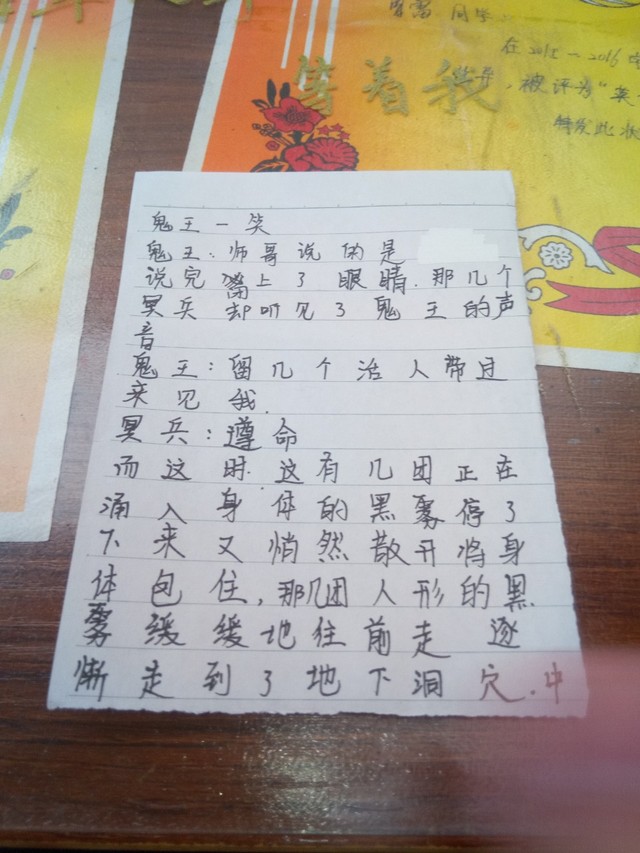 同学:
在2015-2016
被评为"英
特发此状
等着我
鬼王一笑
鬼王:师哥说的是
说完 上了眼睛.那几个
冥兵却听见了鬼王的声
音
鬼王:留几个活人带过
来见我.
冥兵:遵命
而这时.这有几团正在
涌入身体的黑雾停了
下来又悄然散开将身
体包住,那几团人形的黑
雾缓缓地往前走 逐
渐走到了地下洞穴.中